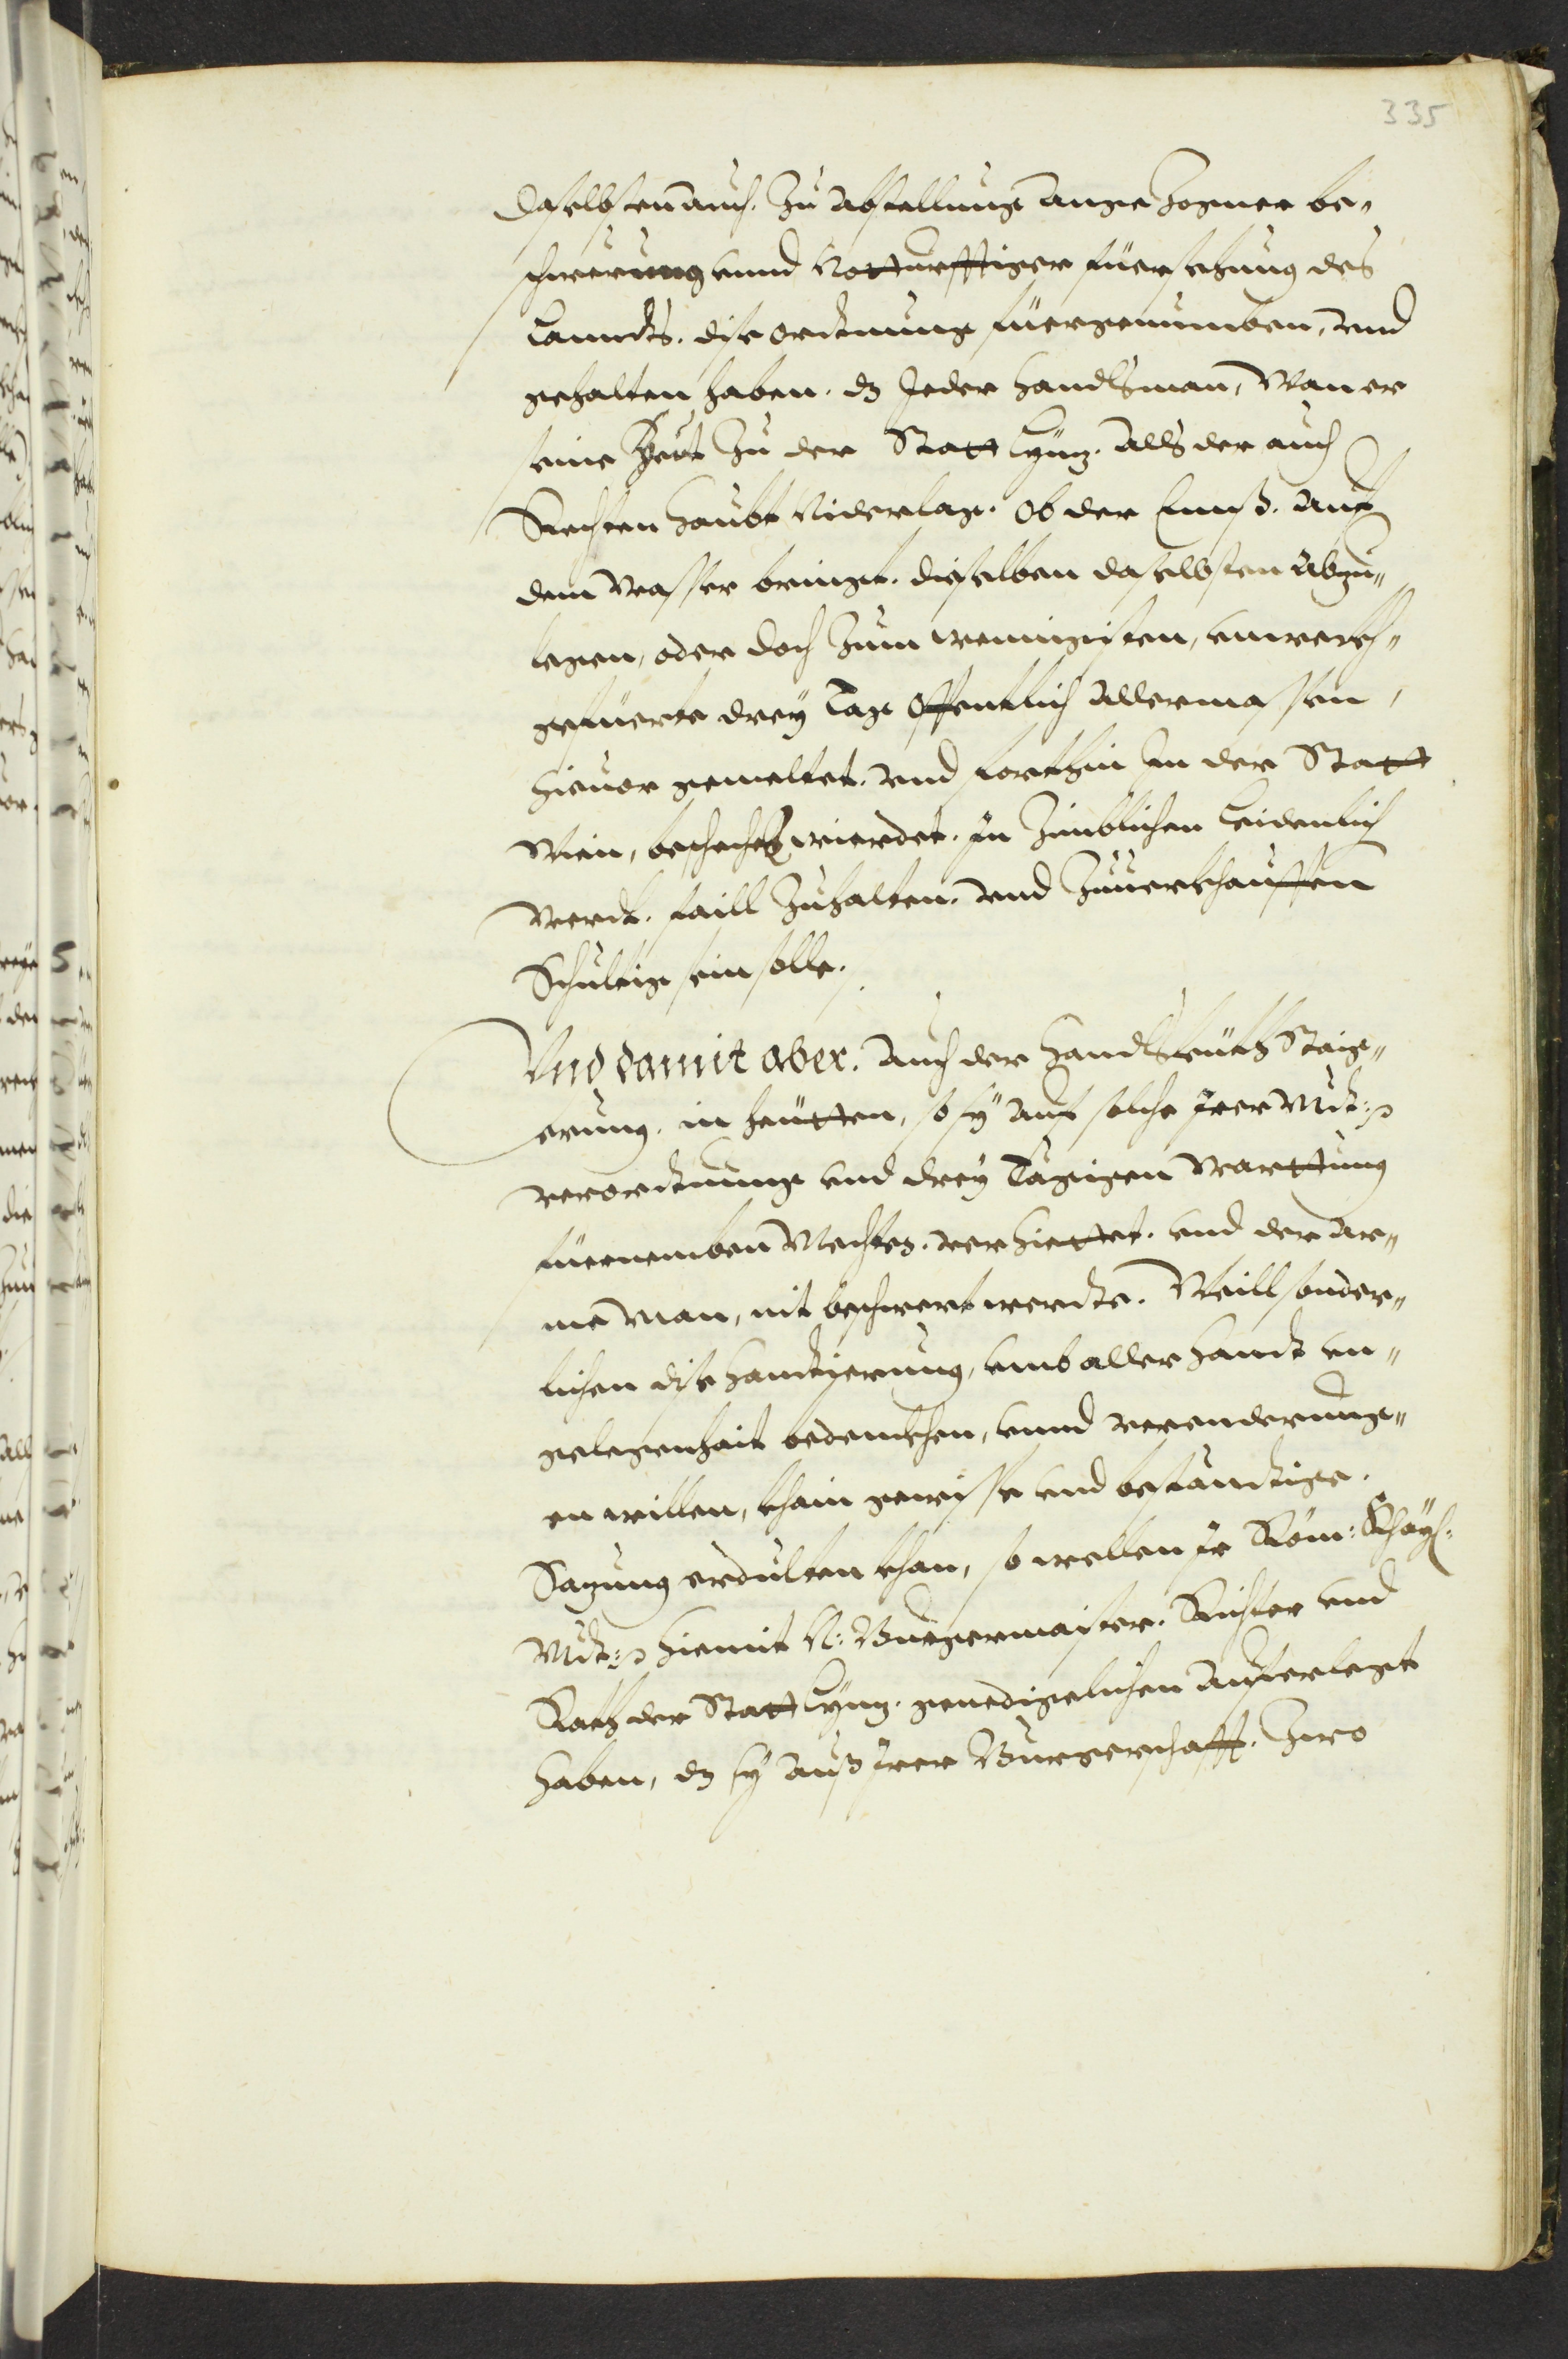 335
daselbsten auch. Zu abstellung angezogner be„
schwerung vnnd Notturfftiger fürsehung des
Lanndts. dise ordnung fürgenumben, vnd
gehalten haben. dz Jeder Handlsman, Wan er
seine Heüt Zu der Statt Lÿnz. Alls der auch
Rechten Haubt Niderlag. Ob der Ennß. auf
dem Wasser bringt. dieselben daselbsten abzu„
legen, oder doch Zum wenigisten, vnverkh„
gefüerte dreÿ Tag Offentlich allermassen,
hieuor gemeltet. vnd forthin In der Statt
Wien, beschechen wierdet. In Zimblichen Leidenlich
Werdt. faill Zuhalten. vnd Zuuerkhauffen
Schultig sein solle.
Vnd damit aber. Auch der Handlsleüth Staig„
erung. in heütten, so sÿ auf solche Irer Mdt:
verordnung vnd dreÿ Tägigen Warttung
fürnemben Mechten. verhiettet. vnd der ar„
me Man, nit beschwert werdte. Weill sonder„
lichen dise Handtierung, vmb aller Handt un„
gelegenhait bedenkhen, vnnd verenderung„
en willen, khain gewisse vnd bestandtige.
Sazung erdulten khan, so wellen Ir Röm: Khaÿ:
Mdt: hiemit N: Burgermaister. Richter vnd
Rath der Statt Lÿnz. genedigelichen auferlegt
haben, dz sÿ auß Irer Burgerschafft. Zwo